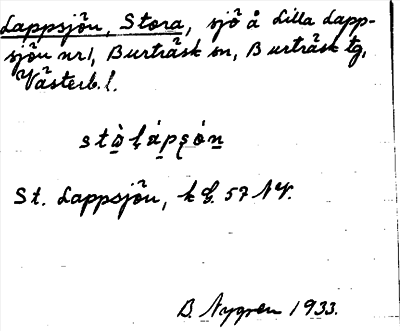 Lappsjön, Stora, sjö å Lilla Lapp-
sjön nr 1, Burträsk sn, Burträsk tg,
Västerb. l.
St. Lappsjön, k G. 57 NV.
B. Nygren 1933.